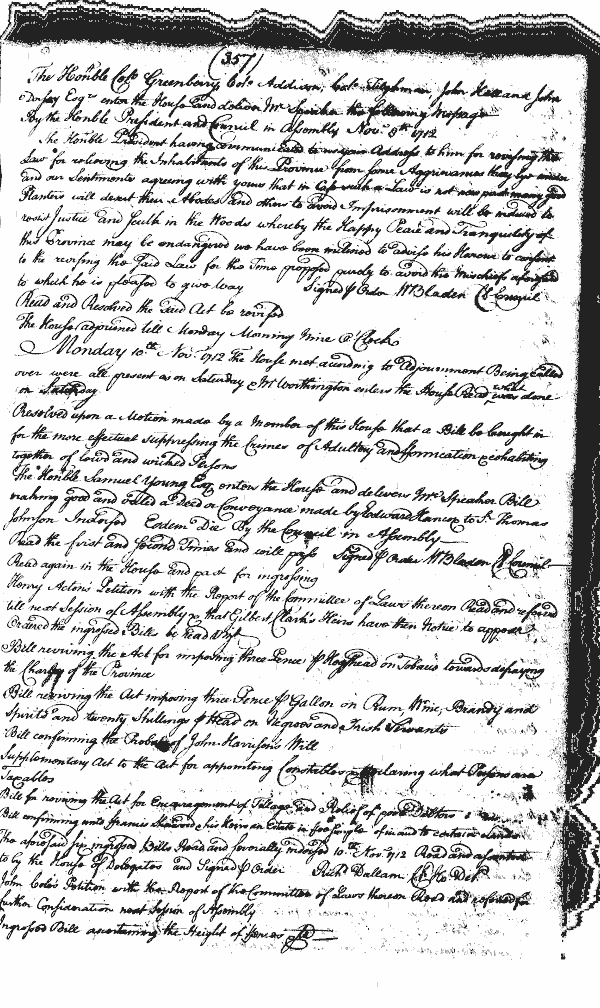 (357)
The Honble Coll Greenberry Coll Addison, Coll Tilghman, John Hall and John
Esqrs enter the House and deliver Mr Speaker the following Message
By the Honble President and Council in Assembly Novr 9th 1712
The Honble President having communicated to us your Address to him for reviving the
Law for relieving the Inhabitants of this Province from some Aggrievances they lye under
and our Sentiments agreeing with yours that in Case such a Law is not now past many good
Planters will desert their Abodes and others to avoid Imprisonment will be induced to
resist Justice and Sculk in the Woods whereby the Happy Peace and Tranquility of
this Province may be endangered we have been inclined to advise his Honour to consent
to the revising the said Law for the Time proposed purely to avoid the Mischiefs aforesaid
to which he is pleased to give way Signed p Order W Bladen Cl Council
Read and Resolved the said Act be revised
The House adjourned till Monday Morning Nine o'Clock
Monday 10th Novr 1712 The House met according to Adjournment Being called
over were all present as on Saturday & Mr Worthington enters the House Read what was done
on Saturday
Resolved upon a Motion made by a Member of this House that a Bill be brought in
for the more effectual suppressing the Crimes of Adultery and Fornication & cohabiting
together of lewd and wicked Persons
The Honble Samuel Young Esq enters the House and delivers Mr Speaker Bill
making good and valid a Deed or Conveyance made by Edward to St Thomas
Johnson Indorsed Eodem Die By the Council in Assembly
Read the first and second Times and will pass Signed p Order W Bladen Cl Council
Read again in the House and past for ingrossing
Henry Acton's Petition with the Report of the Committee of Laws thereon Read and referred
till next Session of Assembly & that Gilbert Clark's Heirs have then Notice to appear
Ordered the ingrossed Bills be Read Vizt
Bill reviving the Act for imposing three Pence p Hogshead on Tobacco towards defraying
the Charge of the Province
Bill reviving the Act imposing three Pence p Gallon on Rum, Wine, Brandy and
Spirits and twenty Shillings p Head on Negroes and Irish Servants
Bill confirming the Probate of John Harrison's Will
Supplementary Act to the Act for appointing Constables declaring what Persons are
Taxables
Bill for reviving the Act for Encouragement of Tillage and Relief of poor Debtors
Bill confirming unto Francis his Heirs an Estate in fee simple of in and to certain Lands
The aforesaid six ingrossed Bills Read and severally indorsed 10th Novr 1712 Read and assented
to by the House of Delegates and Signed p Order Richd Dallam Cl Ho Del
John Cole's Petition with the Report of the Committee of Laws thereon Read and referred for
further Consideration next Session of Assembly
Ingrossed Bill ascertaining the Height of Fences